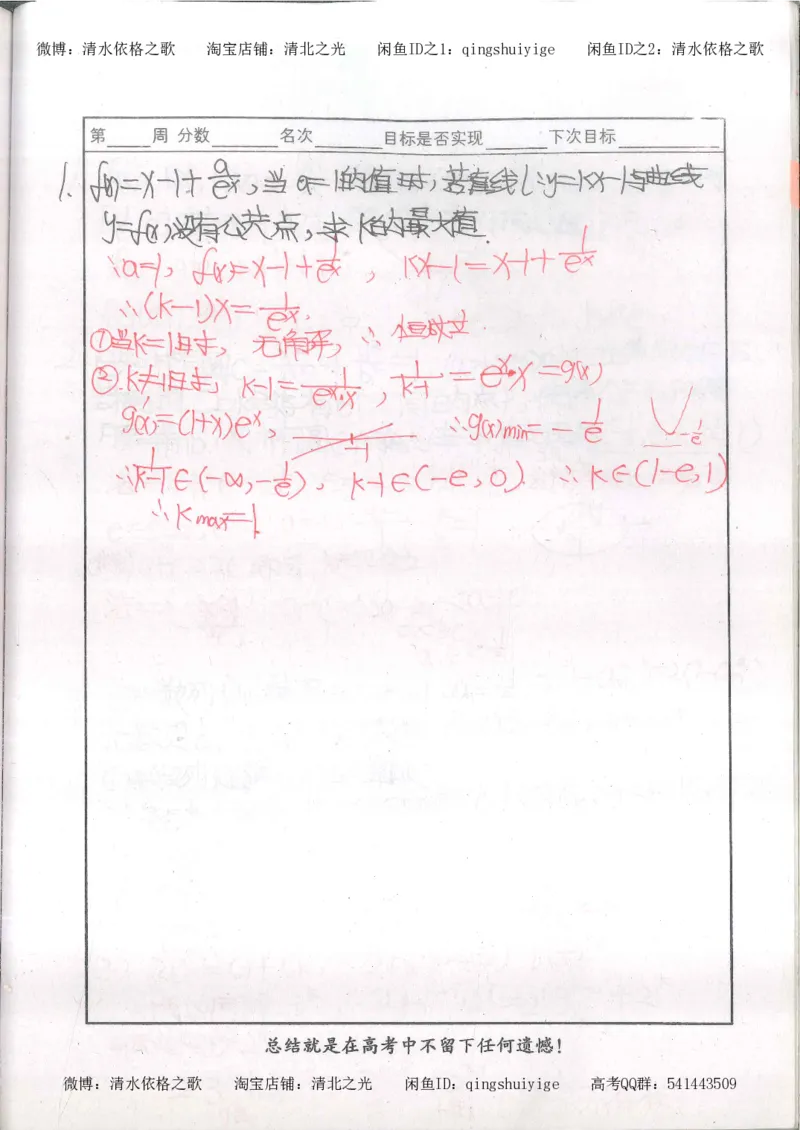 微博：清水依格之歌 淘宝店铺：清北之光 闲鱼ID之1：qingshuiyige 闲鱼ID之2：清水依格之歌
第____周 分数______名次______目标是否实现______下次目标________
1. f(x)=x-1+a/e^x，当a=1的值时，若直线l：y=kx-1与曲线
y=f(x)没有公共点，求k的最大值.
∵a=1，f(x)=x-1+1/e^x，kx-1=x-1+1/e^x
∴(k-1)x=1/e^x.
①当k=1时，无解，∴恒成立
②.k≠1时，k-1=1/(e^x·x)，1/(k-1)=e^x·x=g(x)
g'(x)=(1+x)e^x， -1 ∴g(x)min=-1/e -1/e
∴1/(k-1)∈(-∞,-1/e)，k-1∈(-e,0). ∴k∈(1-e,1)
∴kmax=1.
总结就是在高考中不留下任何遗憾！
微博：清水依格之歌 淘宝店铺：清北之光 闲鱼ID：qingshuiyige 高考QQ群：541443509